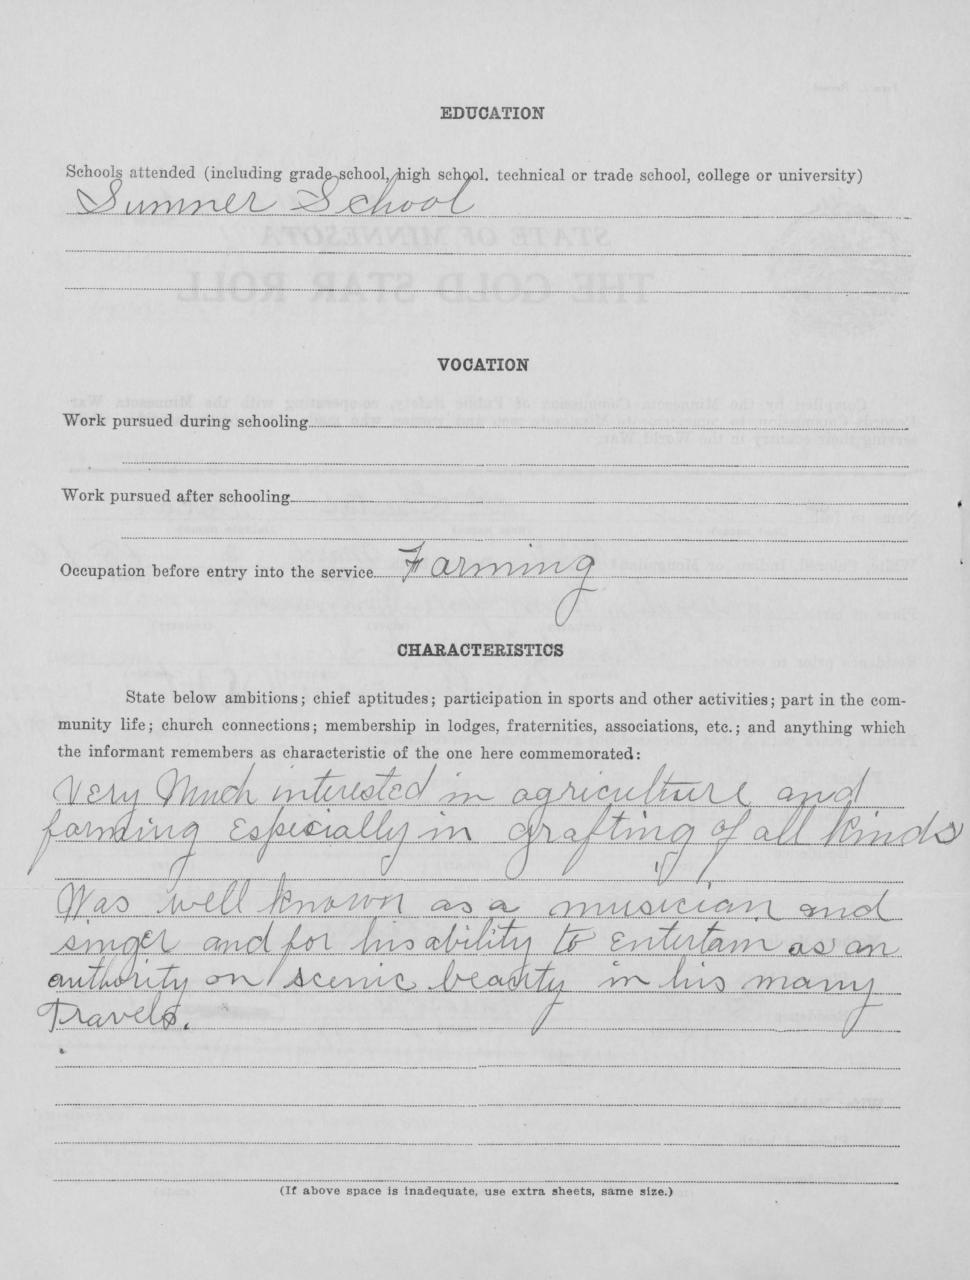 EDUCATION
Schools attended (including grade school, high school. technical or trade school, college or university)
Sumner School
VOCATION
Work pursued during schooling
Work pursued after schooling
Occupation before entry into the service Farming
CHARACTERISTICS
State below ambitions; chief aptitudes; participation in sports and other activities; part in the com-
munity life; church connections; membership in lodges, fraternities, associations, etc.; and anything which
the informant remembers as characteristic of the one here commemorated:
Very Much interested in agriculture and
farming Especially in grafting of all kinds
Was well known as a musician and
singer and for his ability to Entertain as an
authority on scenic beauty in his many
Travels.
(If above space is inadequate, use extra sheets, same size.)